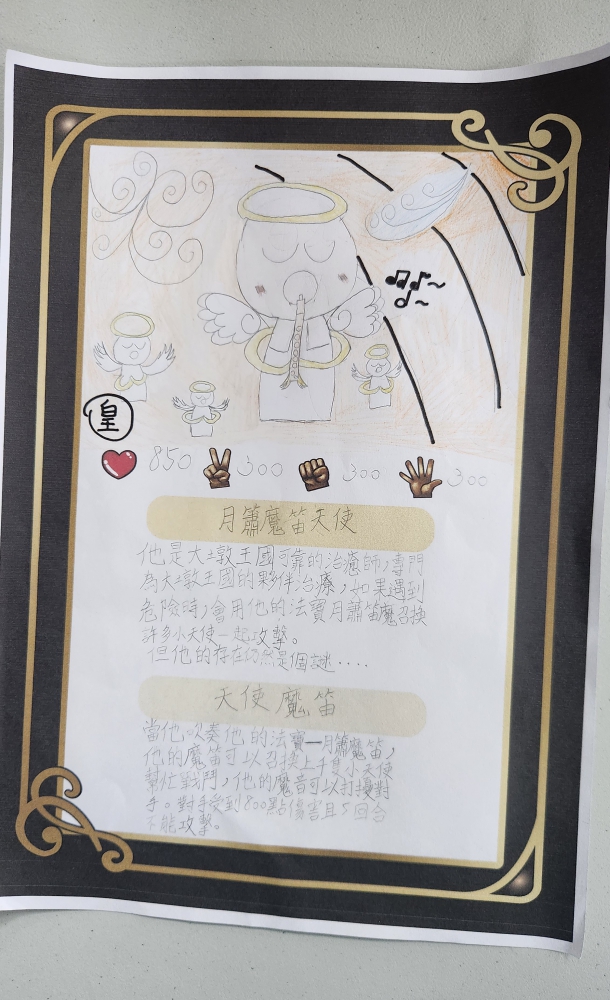 皇
850 300 300 300
月簫魔笛天使
他是大墩王國可靠的治癒師,專門
為大墩王國的夥伴治療,如果遇到
危險時,會用他的法寶月簫笛魔召換
許多小天使一起攻擊。
但他的存在仍然是個謎....
天使魔笛
當他吹奏他的法寶—月簫魔笛,
他的魔笛可以召換上千隻小天使
幫忙戰鬥,他的魔音可以打擾對
手。對手受到800點傷害且5回合
不能攻擊。